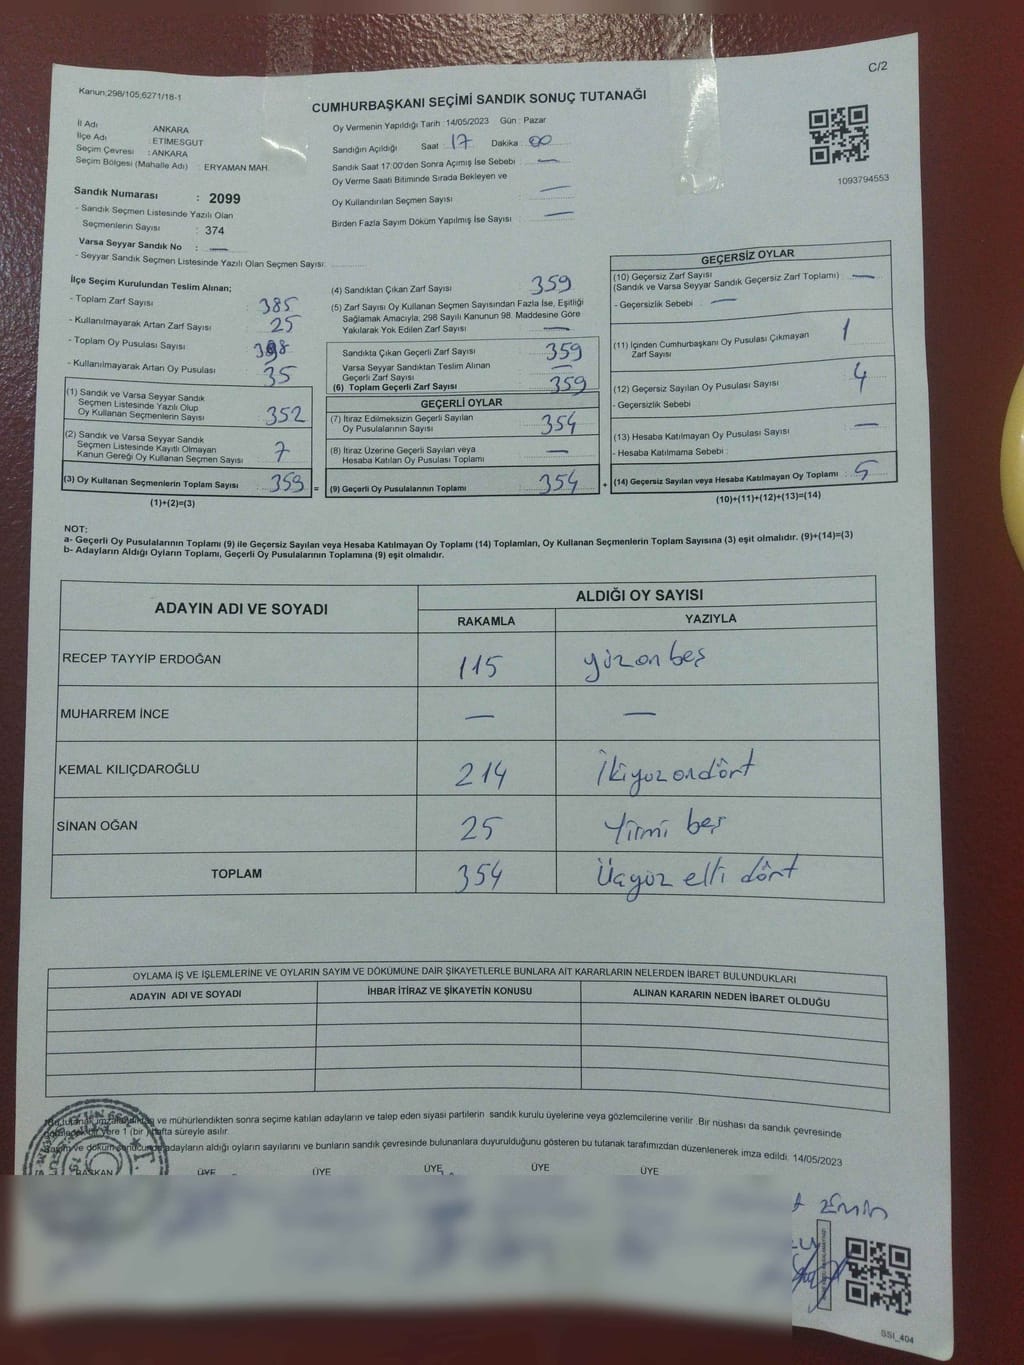 C/2
Kanun;298/105;6271/18-1
CUMHURBAŞKANI SEÇİMİ SANDIK SONUÇ TUTANAĞI
İl Adı ANKARA
İlçe Adı : ETİMESGUT
Seçim Çevresi : ANKARA
Seçim Bölgesi (Mahalle Adı) : ERYAMAN MAH.
Sandık Numarası : 2099
- Sandık Seçmen Listesinde Yazılı Olan
Seçmenlerin Sayısı : 374
Varsa Seyyar Sandık No : —
- Seyyar Sandık Seçmen Listesinde Yazılı Olan Seçmen Sayısı:
Oy Vermenin Yapıldığı Tarih : 14/05/2023 Gün : Pazar
Sandığın Açıldığı Saat : 17 Dakika : 00
Sandık Saat 17:00'den Sonra Açımış İse Sebebi : —
Oy Verme Saati Bitiminde Sırada Bekleyen ve
Oy Kullandırılan Seçmen Sayısı : —
Birden Fazla Sayım Döküm Yapılmış İse Sayısı : —
1093794553
İlçe Seçim Kurulundan Teslim Alınan;
- Toplam Zarf Sayısı : 385
- Kullanılmayarak Artan Zarf Sayısı : 25
- Toplam Oy Pusulası Sayısı :
- Kullanılmayarak Artan Oy Pusulası : 35
(1) Sandık ve Varsa Seyyar Sandık
Seçmen Listesinde Yazılı Olup
Oy Kullanan Seçmenlerin Sayısı : 352
(2) Sandık ve Varsa Seyyar Sandık
Seçmen Listesinde Kayıtlı Olmayan
Kanun Gereği Oy Kullanan Seçmen Sayısı : 7
(3) Oy Kullanan Seçmenlerin Toplam Sayısı : 359 =
(1)+(2)=(3)
(4) Sandıktan Çıkan Zarf Sayısı : 359
(5) Zarf Sayısı Oy Kullanan Seçmen Sayısından Fazla İse, Eşitliği
Sağlamak Amacıyla, 298 Sayılı Kanunun 98. Maddesine Göre
Yakılarak Yok Edilen Zarf Sayısı : —
Sandıkta Çıkan Geçerli Zarf Sayısı : 359
Varsa Seyyar Sandıktan Teslim Alınan
Geçerli Zarf Sayısı : —
(6) Toplam Geçerli Zarf Sayısı : 359
GEÇERLİ OYLAR
(7) İtiraz Edilmeksizin Geçerli Sayılan
Oy Pusulalarının Sayısı : 354
(8) İtiraz Üzerine Geçerli Sayılan veya
Hesaba Katılan Oy Pusulası Toplamı : —
(9) Geçerli Oy Pusulalarının Toplamı : 354 +
GEÇERSİZ OYLAR
(10) Geçersiz Zarf Sayısı
(Sandık ve Varsa Seyyar Sandık Geçersiz Zarf Toplamı) : —
- Geçersizlik Sebebi : —
(11) İçinden Cumhurbaşkanı Oy Pusulası Çıkmayan
Zarf Sayısı : 1
(12) Geçersiz Sayılan Oy Pusulası Sayısı : 4
- Geçersizlik Sebebi
(13) Hesaba Katılmayan Oy Pusulası Sayısı : —
- Hesaba Katılmama Sebebi :
(14) Geçersiz Sayılan veya Hesaba Katılmayan Oy Toplamı : 5
(10)+(11)+(12)+(13)=(14)
NOT:
a- Geçerli Oy Pusulalarının Toplamı (9) ile Geçersiz Sayılan veya Hesaba Katılmayan Oy Toplamı (14) Toplamları, Oy Kullanan Seçmenlerin Toplam Sayısına (3) eşit olmalıdır. (9)+(14)=(3)
b- Adayların Aldığı Oyların Toplamı, Geçerli Oy Pusulalarının Toplamına (9) eşit olmalıdır.
ADAYIN ADI VE SOYADI ALDIĞI OY SAYISI
RAKAMLA YAZIYLA
RECEP TAYYİP ERDOĞAN 115 yüzonbeş
MUHARREM İNCE — —
KEMAL KILIÇDAROĞLU 214 İkiyüzondört
SİNAN OĞAN 25 Yirmi beş
TOPLAM 354 Üçyüz elli dört
OYLAMA İŞ VE İŞLEMLERİNE VE OYLARIN SAYIM VE DÖKÜMÜNE DAİR ŞİKAYETLERLE BUNLARA AİT KARARLARIN NELERDEN İBARET BULUNDUKLARI
ADAYIN ADI VE SOYADI İHBAR İTİRAZ VE ŞİKAYETİN KONUSU ALINAN KARARIN NEDEN İBARET OLDUĞU
ve mühürlendikten sonra seçime katılan adayların ve talep eden siyasi partilerin sandık kurulu üyelerine veya gözlemcilerine verilir. Bir nüshası da sandık çevresinde
yere 1 (bir) hafta süreyle asılır.
adayların aldığı oyların sayılarını ve bunların sandık çevresinde bulunanlara duyurulduğunu gösteren bu tutanak tarafımızdan düzenlenerek imza edildi. 14/05/2023
BAŞKAN ÜYE ÜYE ÜYE ÜYE ÜYE
SSI_404